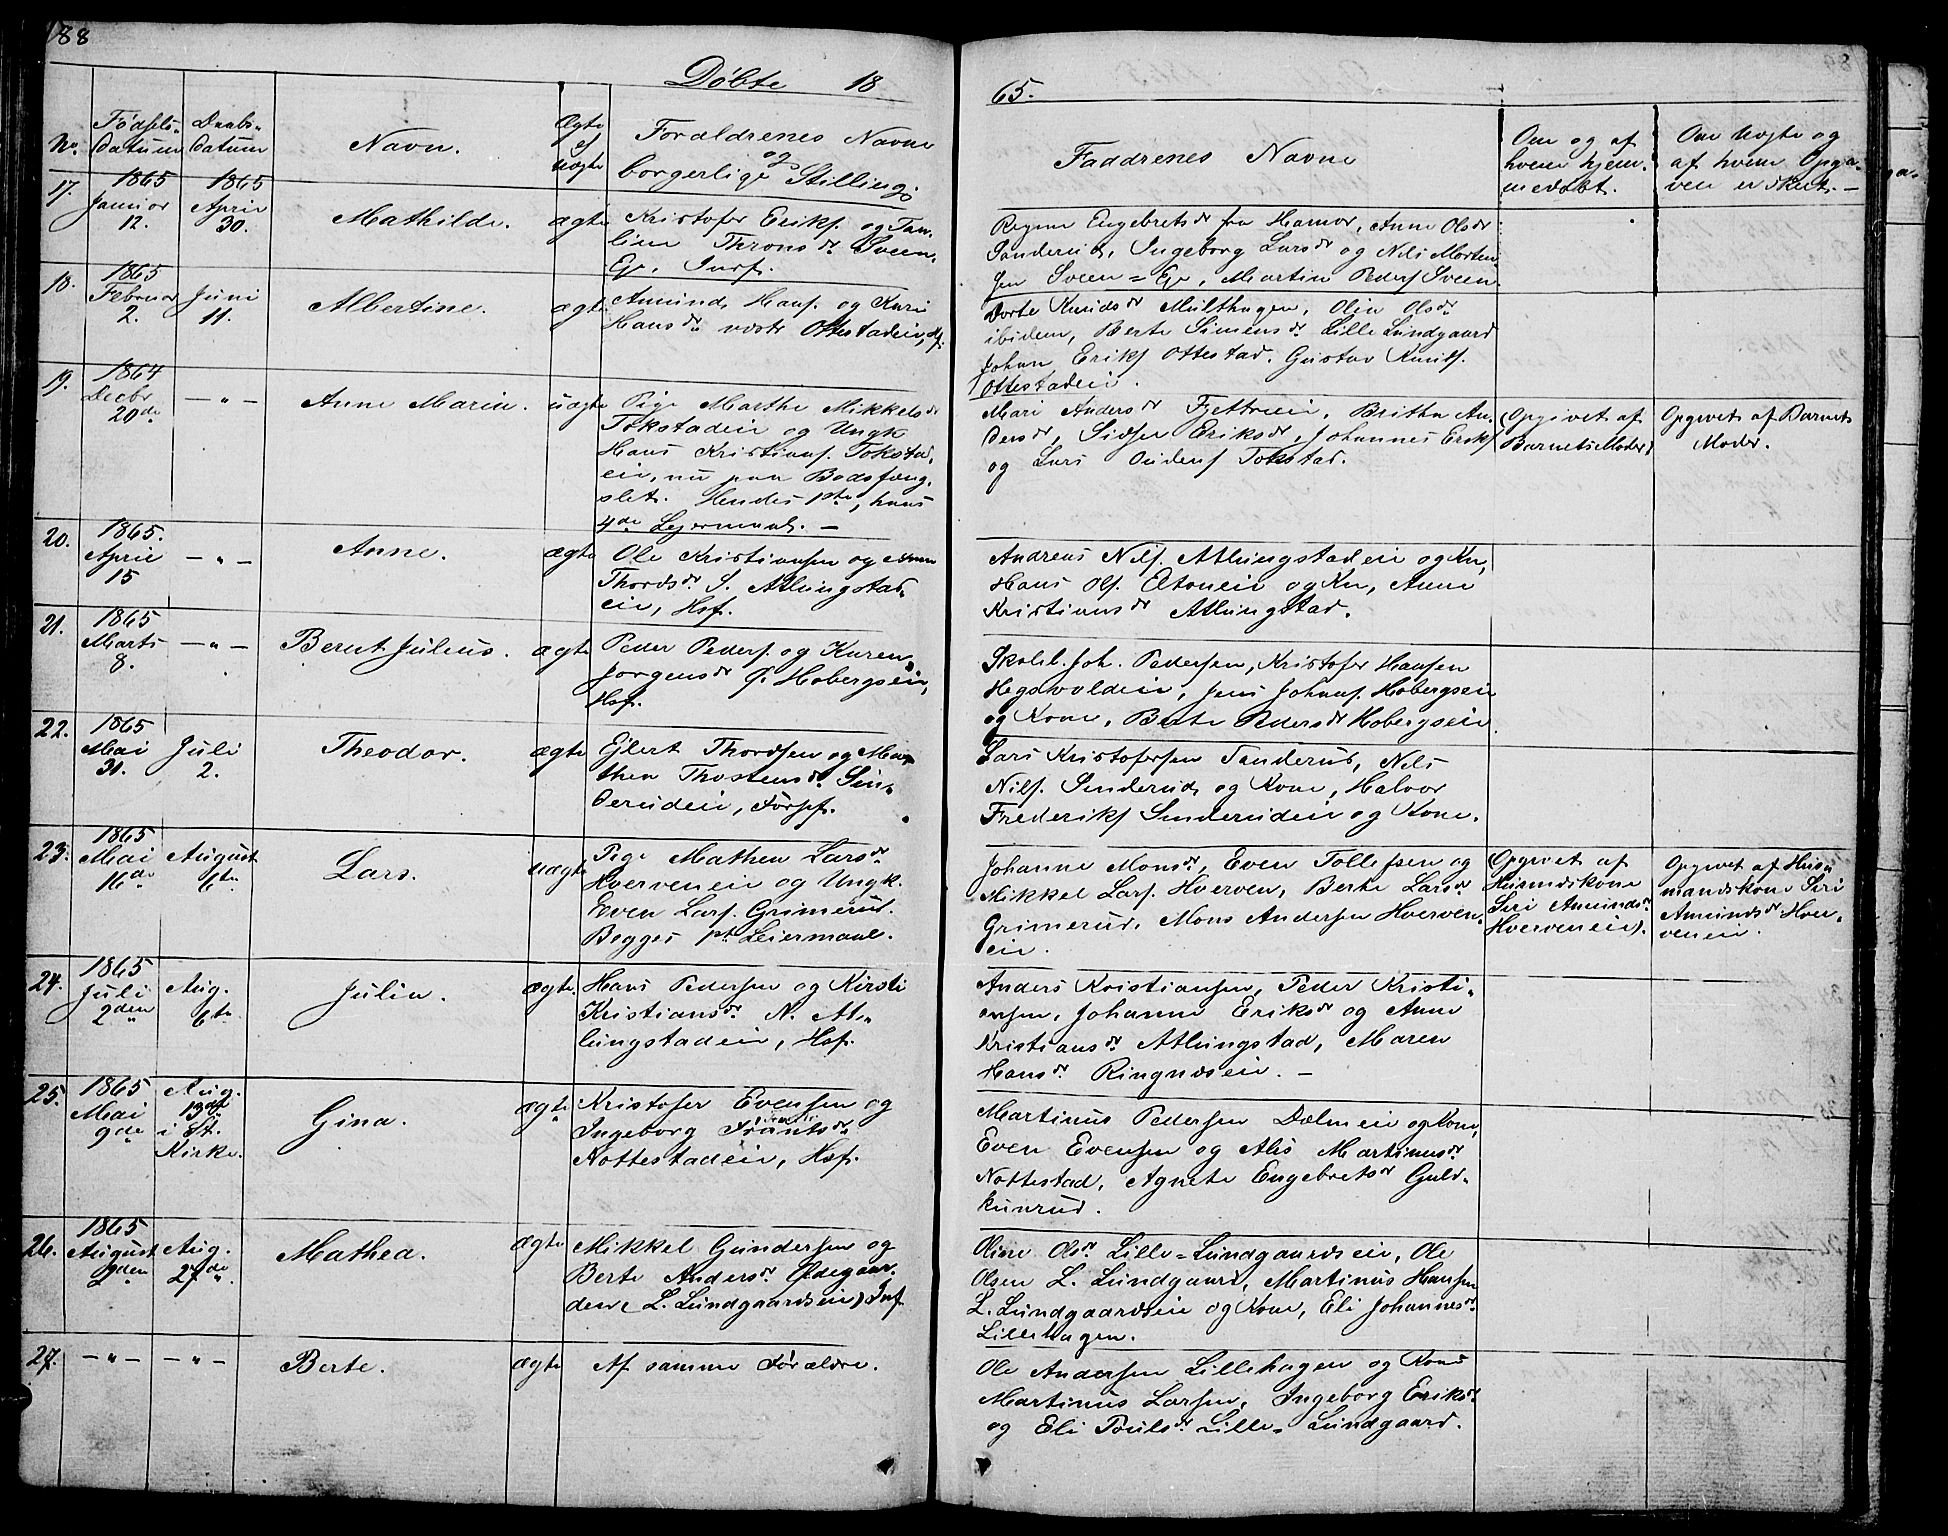 88
Döbte 1865.
No. Fødsels-datum Daabs-datum Navn. Ægte ej uægte Forældrenes Navne og borgerlige Stilling. Faddrenes Navne Om og af hvem hjem-medøbt. Om Uægte og af hvem Opga-ven er skeet. —
17. 1865 Januar 12. 1865 April 30. Mathilde. ægte
Kristofer Eriks. og
line Throns dr. Sveen,
Ej. Insf.
Regine Engebrets dr fra Hamar, Anne Ols dr
Sanderud, Ingeborg Lars dr og Nils Morten-
sen Sveen=Eje, Martin Peders Sveen.
18. 1865 Februar 2. Juni 11. Albertine. ægte
Amund Hans. og Kari
Hans dr. Ottestadeie,
Dorte Knuds dr Multhagen, Olia Ols dr
ibidem, Berte Simens dr. Lille Lundgaard
Johan Eriks Ottestad. Gustav Knuds.
Ottestadeie.
19. 1864 Decbr 29de — „ — Anne Marie. uægte
Pige Marthe Mikkels dr
Tokstadeie og Ungk.
Hans Kristians. Tokstad-
eie, nu paa Bodsfæng-
slet. Hendes 1ste, hans
4de Lejermaal. —
Mari Anders dr Fjettreeie, Britha An-
ders dr, Sidsee Eriks dr, Johannes Eriks
og Lars Oudens Tokstad.
(Opgivet af
Barnets Moder)
Opgivet af Barnets
Moder.
20. 1865. April 15 — „ — Anne. ægte
Ole Kristiansen og Anne
Thords dr. S. Atlungstad-
eie, Hsf.
Andreas Nils. Atlungstadeie og Kn,
Hans Ols. Eltoneie og Kn, Anne
Kristians dr Atlungstad.
21. 1865 Marts 8. — „ — Bernt Julius. ægte
Peder Peders. og Karen
Jørgens dr Ø. Hobergseie,
Hsf.
Skolel. Joh. Pedersen, Kristofer Hansen
Hegsvoldeie, Jens Johans. Hobergseie
og Kone, Berte Peders dr Hobergseie.
22. 1865 Mai 31. Juli 2. Theodor. ægte
Ejlert Thordsen og Mar-
then Thostens dr. Sin-
derudeie,
Lars Kristofersen Sanderud, Nils
Nils. Sinderud og Kone, Halvor
Frederiks Sinderudeie og Kone.
23. 1865 Mai 16de August 6te Lars. uægte
Pige Mathea Lars dr.
Hverveneie og Ungk.
Even Lars. Grimerud.
Begges 1st Leiermaal.
Johanne Mons dr, Even Tollefsen og
Mikkel Lars. Hverven, Berte Lars dr
Grimerud, Mons Andersen Hverven-
eie.
(Opgivet af
Husmandskone
Siri Amunds dr
Hverveneie).
Opgivet af Hus-
mandskone Siri
Amunds dr Hver-
veneie.
24. 1865 Juli 2den Aug. 6te Julia. ægte
Hans Pedersen og Kirsti
Kristians dr. N. At-
lungstadeie, Hsf.
Anders Kristiansen, Peder Kristi-
ansen, Johanne Eriks dr og Anne
Kristians dr. Atlungstad, Maren
Hans dr. Ringnæseie. —
25. 1865 Mai 9de Aug. 13de i St. Kirke. Gina. ægte
Kristofer Evensen og
Ingeborg
Nottestadeie, Hsf.
Martinus Pedersen Dælineie og Kone,
Even Evensen og Alis Martinus dr.
Nottestad, Agnete Engebrets dr Guld-
kunrud.
26. 1865 August 2den Aug. 27de. Mathea. ægte
Mikkel Gundersen og
Berte Anders dr. Ødegaar-
den (L. Lundgaardseie) Insf.
Oline Ols dr. Lille=Lundgaardseie, Ole
Olsen L. Lundgaard, Martinus Hansen
L. Lundgaardseie og Kone, Eli Johannes dr.
Lillehagen.
27. — „ — — „ — Berte. ægte
Af samme Forældre.
Ole Andersen Lillehagen og Kone
Martinus Larsen, Ingeborg Eriks dr
og Eli Pouls dr. Lille- Lundgaard.